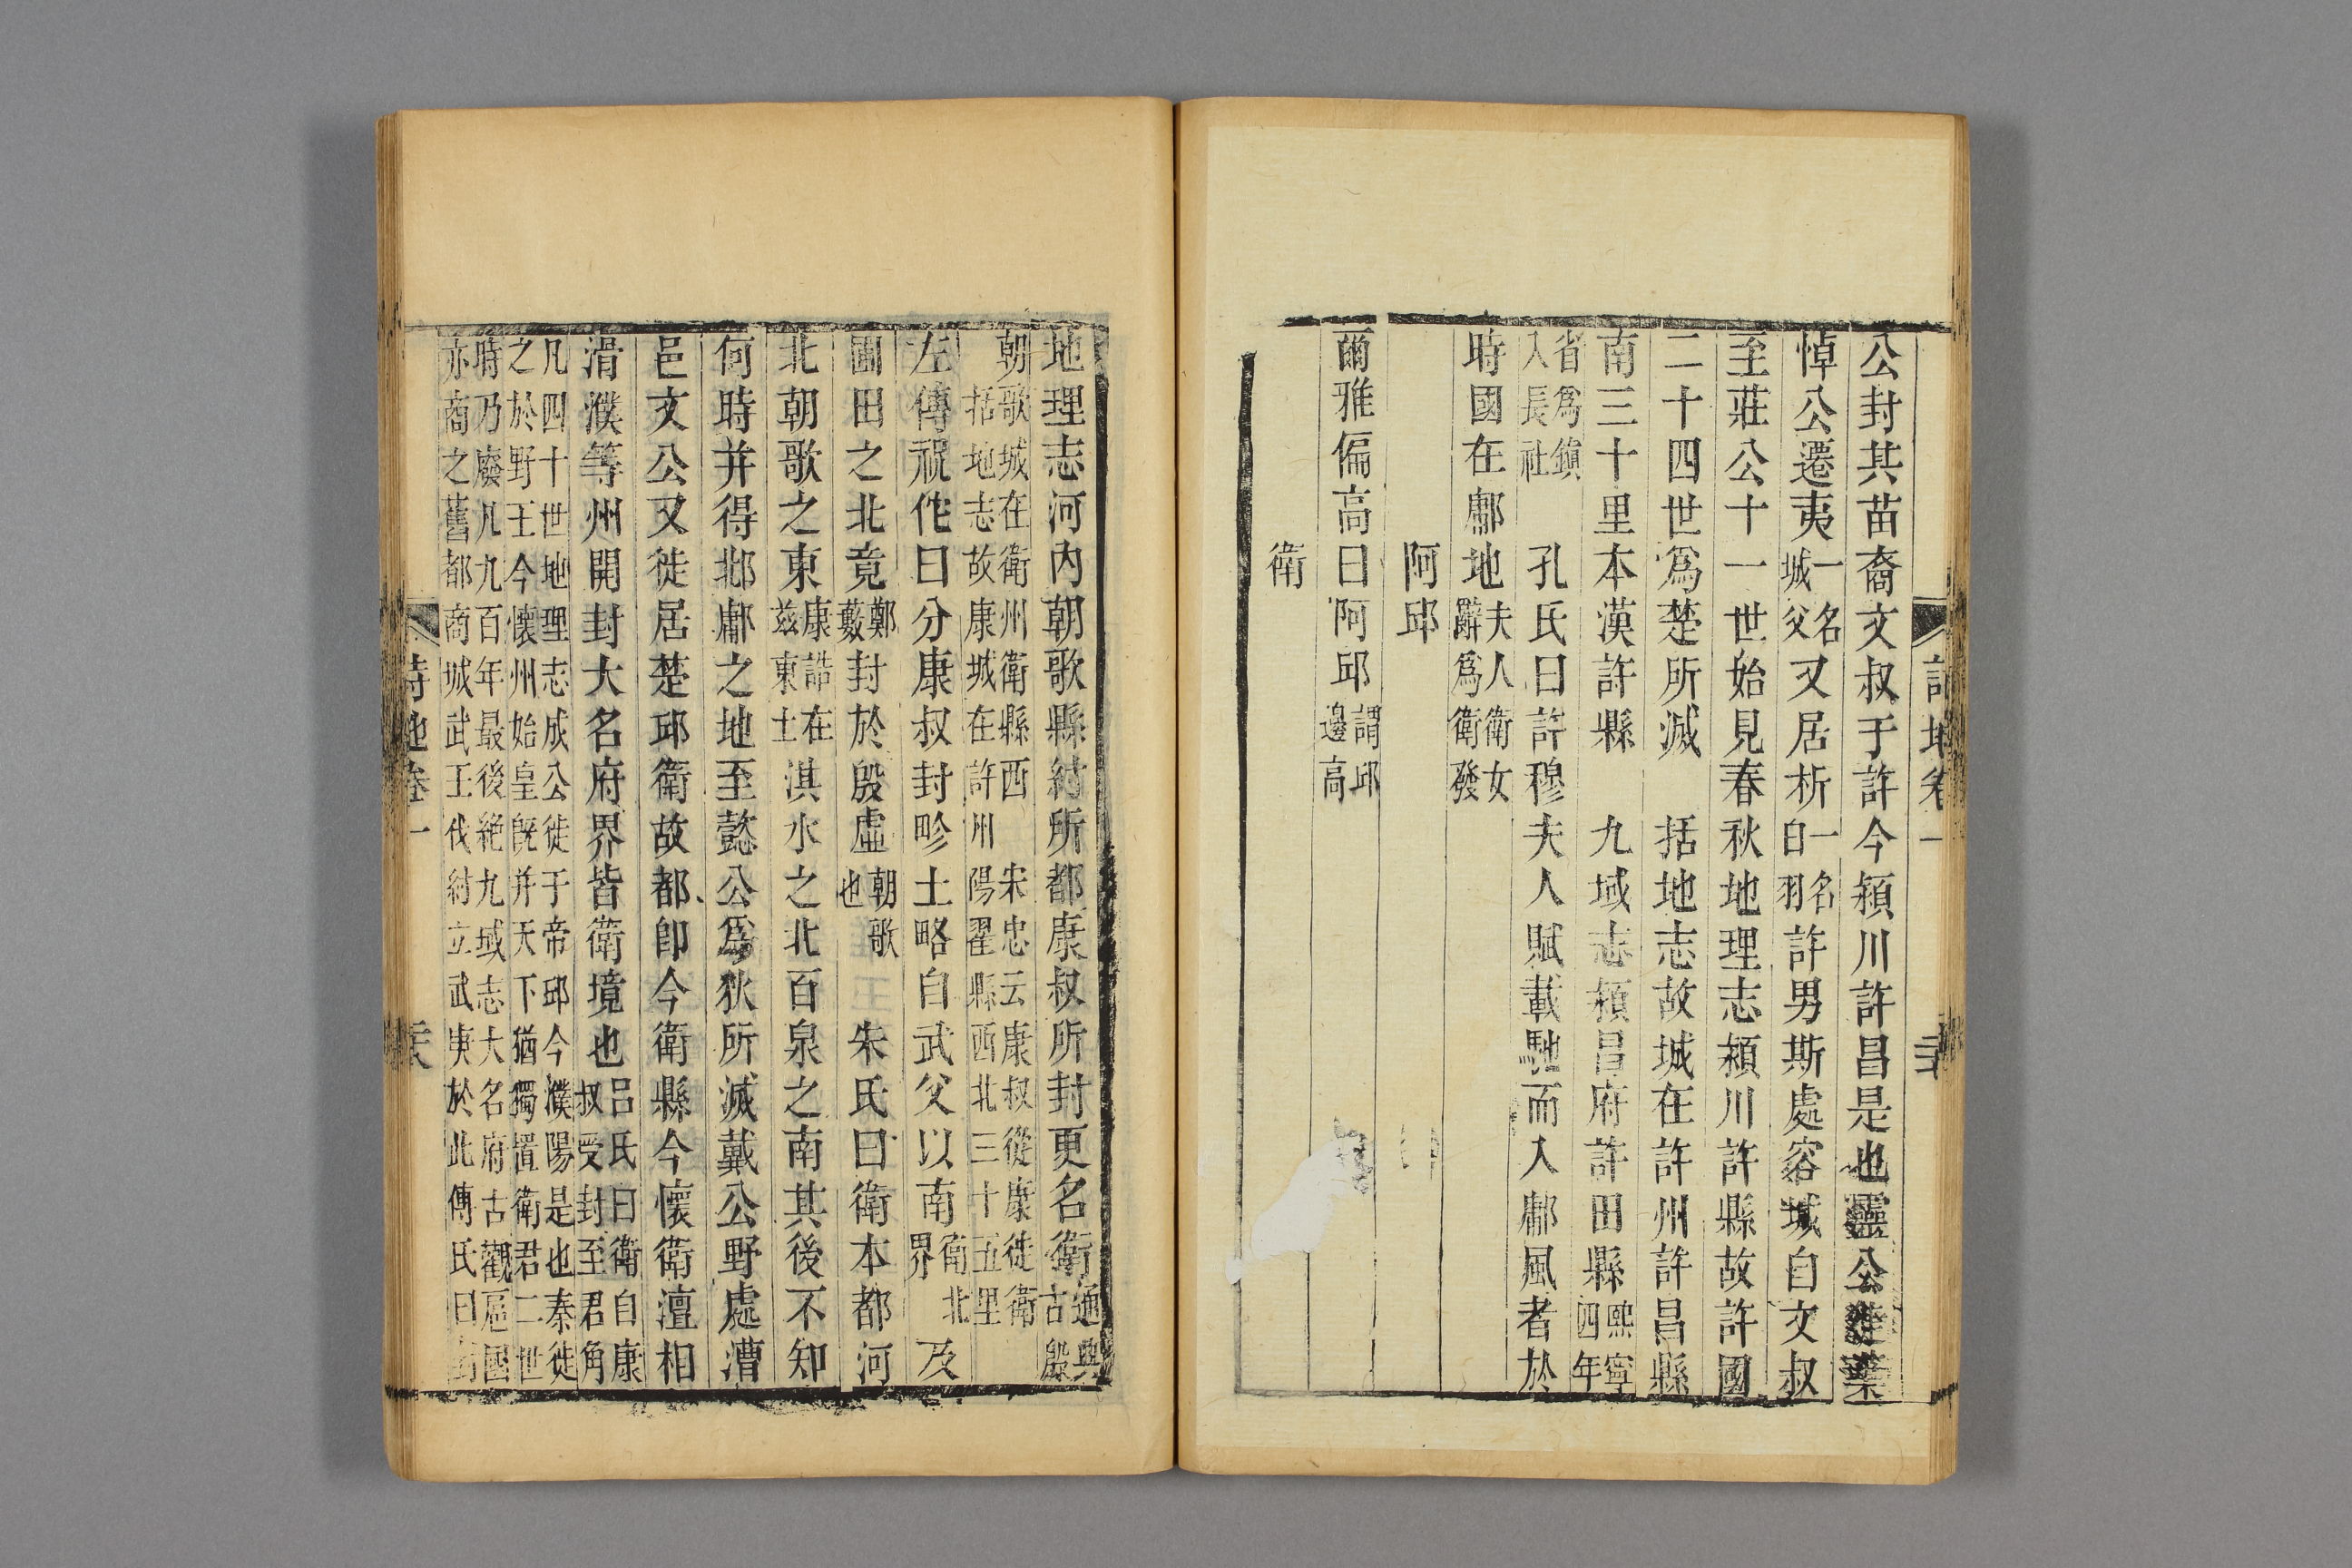 公封其苗裔文叔于許今潁川許昌是也靈公遷葉
悼公遷夷一名城父又居析一名白羽許男斯處容城自文叔
至莊公十一世始見春秋地理志潁川許縣故許國
二十四世為楚所滅　括地志故城在許州許昌縣
南三十里本漢許縣　九域志潁昌府許田縣熙寧四年
省為鎮入長社　孔氏曰許穆夫人賦載馳而入鄘風者於
時國在鄘地夫人衛女辭為衛發
阿邱
爾雅偏高曰阿邱謂邱邊高
衛
地理志河內朝歌縣紂所都康叔所封更名衛通典古殷
朝歌城在衛州衛縣西　宋忠云康叔從康徙衛括地志故康城在許州陽翟縣西北三十五里
左傳祝佗曰分康叔封畛土略自武父以南衛北界及
圃田之北竟鄭藪封於殷虛朝歌也　朱氏曰衛本都河
北朝歌之東康誥在茲東土淇水之北百泉之南其後不知
何時并得邶鄘之地至懿公為狄所滅戴公野處漕
邑文公又徙居楚邱衛故都卽今衛縣今懷衛澶相
滑濮等州開封大名府界皆衛境也呂氏曰衛自康叔受封至君角
凡四十世地理志成公徙于帝邱今濮陽是也秦徙之於野王今懷州始皇旣并天下猶獨置衛君二世
時乃廢凡九百年最後絕九域志大名府古觀扈國亦商之舊都商城武王伐紂立武庚於此傳氏曰
詩地卷一